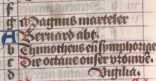 g Magnus marteler
A Bernard abt
b Thymotheus en̄ symphoria
c Die octaue onser vrouwe.
d Vigilia.